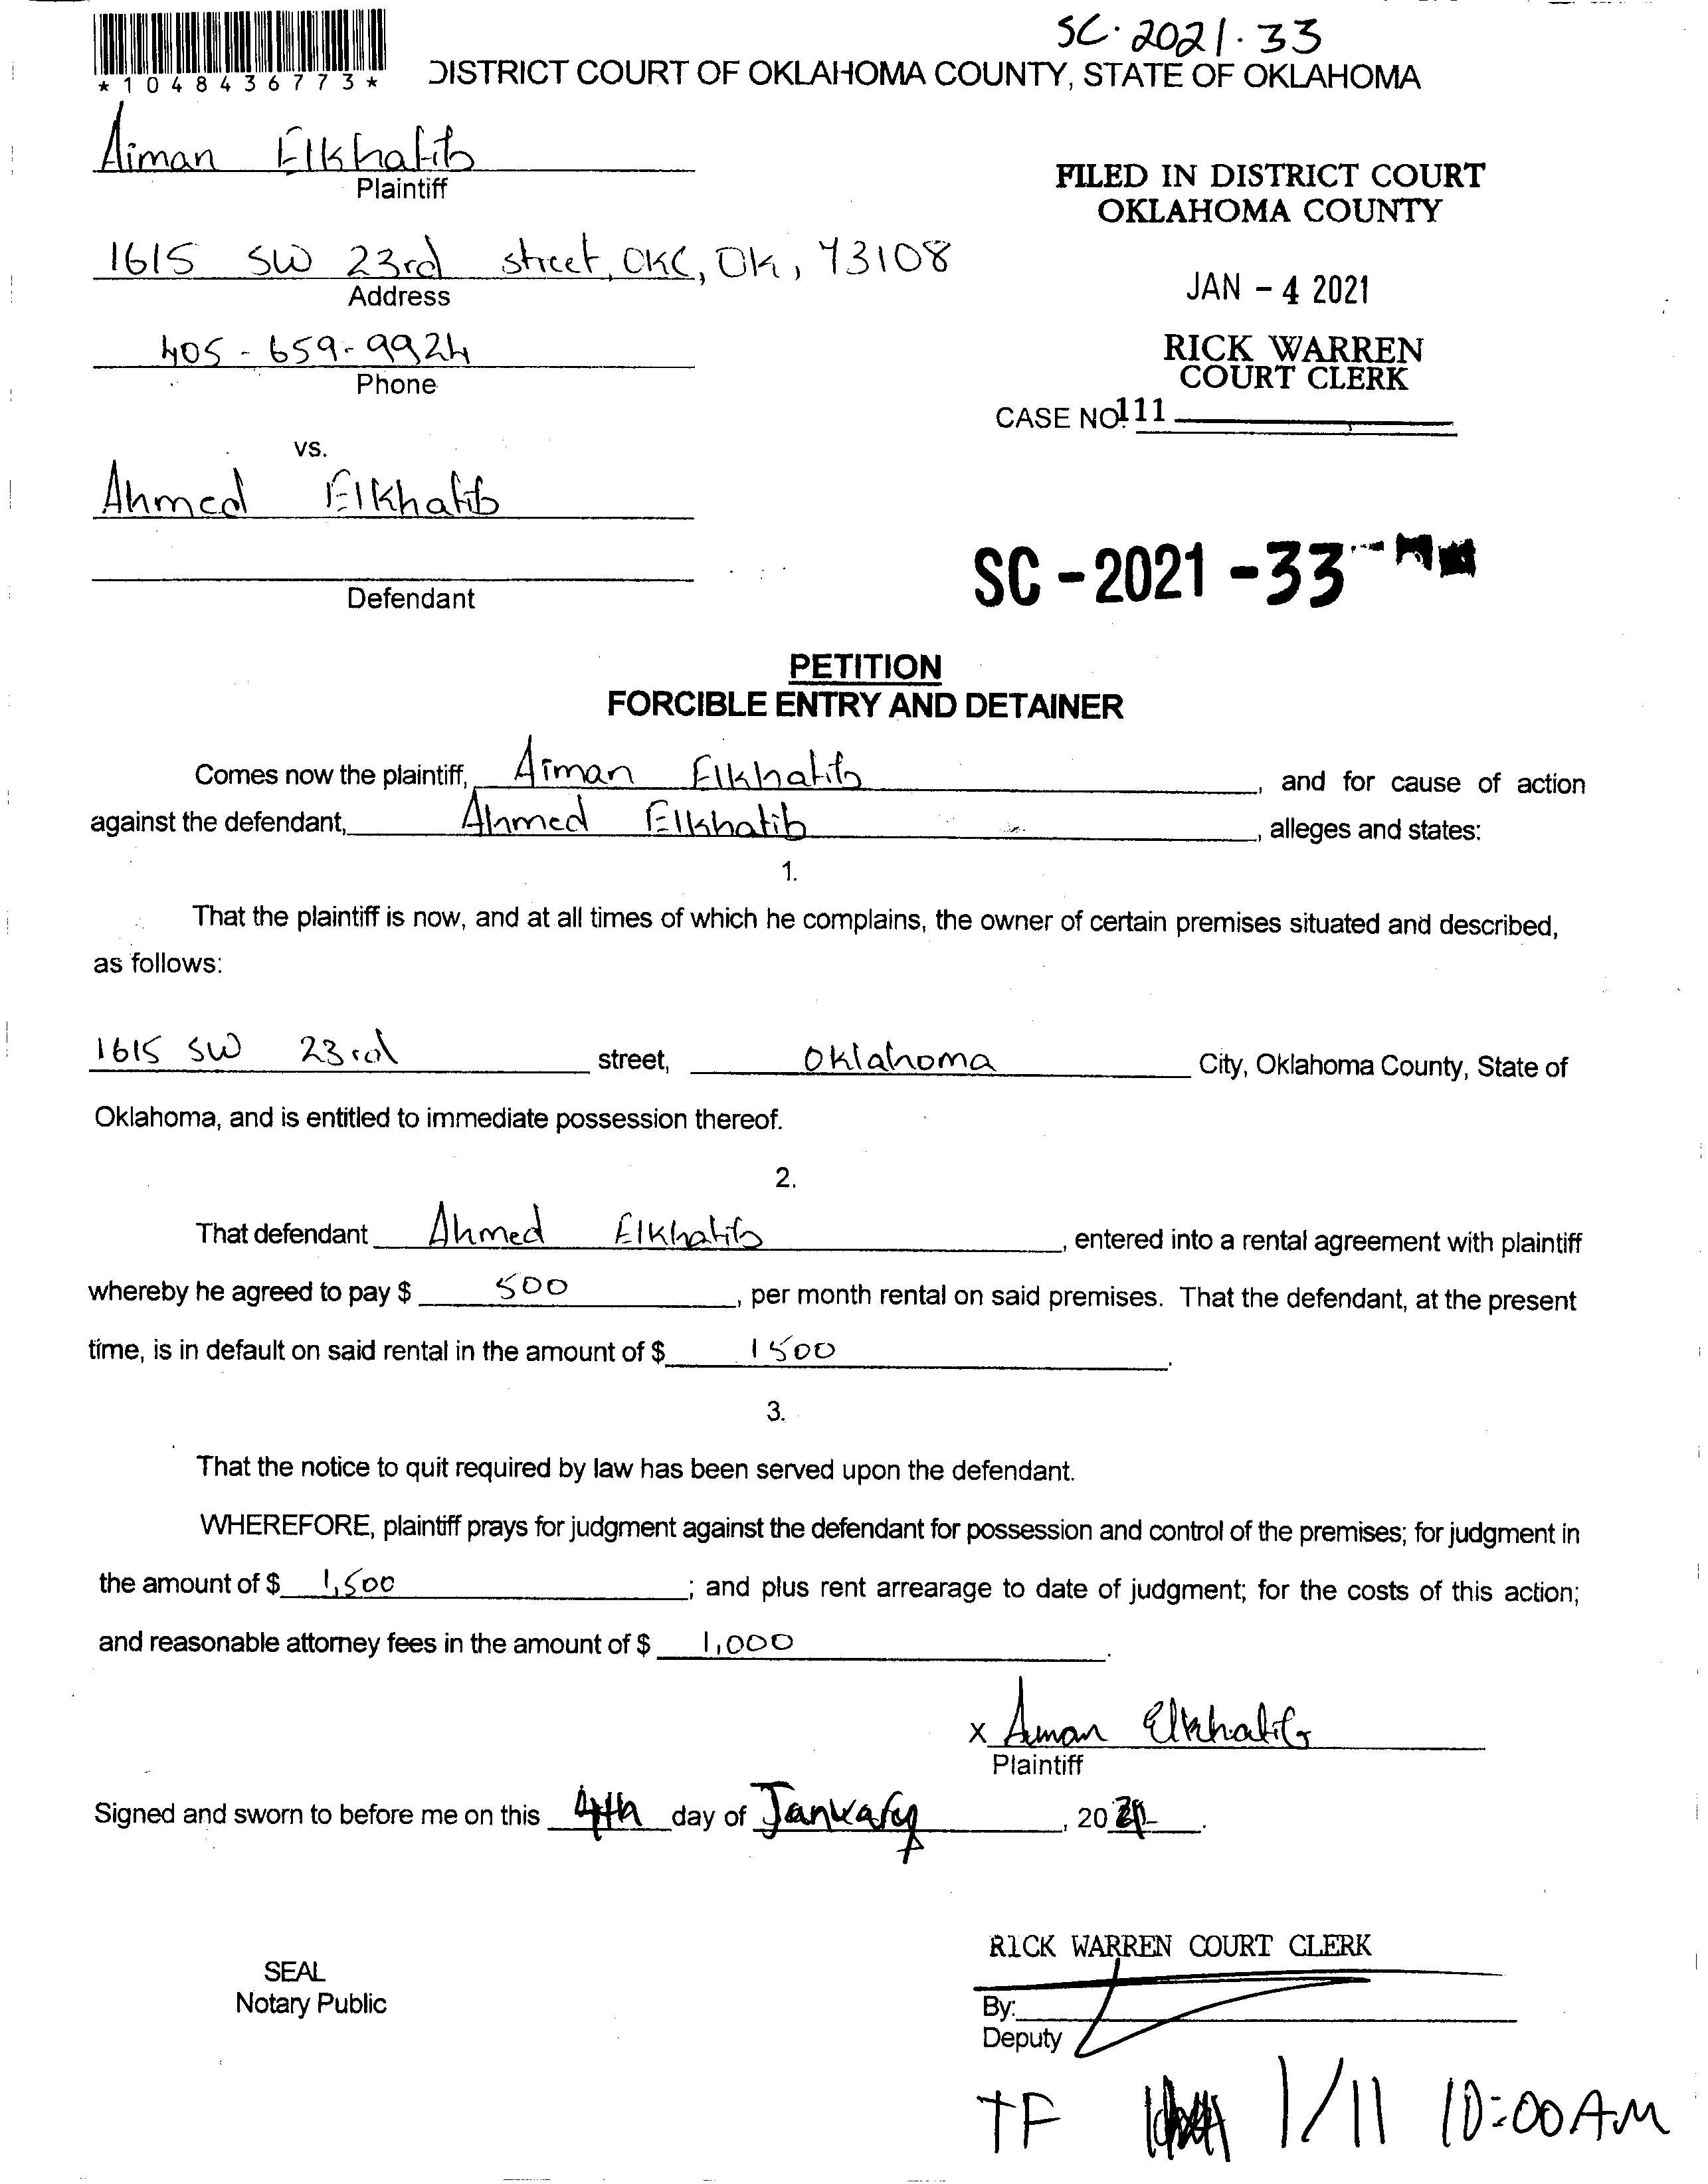 SC·2021·33
*1048436773*
DISTRICT COURT OF OKLAHOMA COUNTY, STATE OF OKLAHOMA
Aiman Elkhatib
Plaintiff
FILED IN DISTRICT COURT
OKLAHOMA COUNTY
1615 SW 23rd street, OKC, OK, 73108
Address
JAN - 4 2021
405-659-9924
Phone
RICK WARREN
COURT CLERK
CASE NO. 111
vs.
Ahmed Elkhatib
Defendant
SC - 2021 - 33
PETITION
FORCIBLE ENTRY AND DETAINER
Comes now the plaintiff, Aiman Elkhatib, and for cause of action
against the defendant, Ahmed Elkhatib, alleges and states:
1.
That the plaintiff is now, and at all times of which he complains, the owner of certain premises situated and described,
as follows:
1615 SW 23rd street, Oklahoma City, Oklahoma County, State of
Oklahoma, and is entitled to immediate possession thereof.
2.
That defendant Ahmed Elkhatib, entered into a rental agreement with plaintiff
whereby he agreed to pay $ 500, per month rental on said premises. That the defendant, at the present
time, is in default on said rental in the amount of $ 1500.
3.
That the notice to quit required by law has been served upon the defendant.
WHEREFORE, plaintiff prays for judgment against the defendant for possession and control of the premises; for judgment in
the amount of $ 1,500; and plus rent arrearage to date of judgment; for the costs of this action;
and reasonable attorney fees in the amount of $ 1,000.
x Aiman Elkhatib
Plaintiff
Signed and sworn to before me on this 4th day of January, 2021.
RICK WARREN COURT CLERK
SEAL
Notary Public
By:
Deputy
TF 1/11 10:00AM